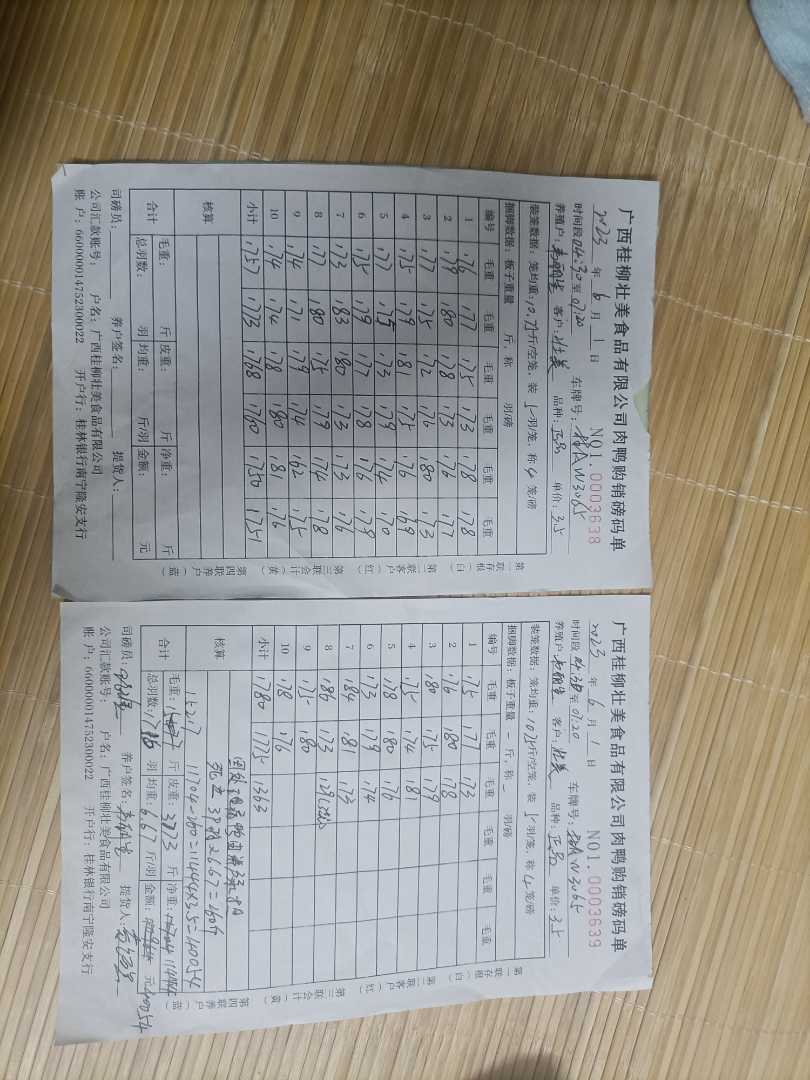 广西桂柳壮美食品有限公司肉鸭购销磅码单
NO1.0003638
2023 年 6 月 1 日
时间段 04:30 至 07:20 车牌号:桂AW3065
养殖户: 客户:壮美 品种:正品 单价:3.5
装笼数据:笼均重:10.7斤/空笼,装 5 羽/笼,称 4 笼/磅
捆脚数据:板子重量 斤,称 羽/磅
编号 毛重 毛重 毛重 毛重 毛重 毛重
1 176 177 175 173 178 178
2 179 180 178 173 176 177
3 177 175 172 176 180 173
4 175 179 181 175 176 169
5 177 175 173 179 174 170
6 175 179 177 178 176 179
7 173 183 180 173 173 176
8 177 180 175 179 174 178
9 174 171 179 174 162 175
10 174 174 178 180 181 176
小计 1757 1773 1768 1760 1750 1751
核算
合计 毛重: 斤 皮重: 斤 净重: 斤
总羽数: 羽 均重: 斤/羽 金额: 元
司磅员: 养户签名: 提货人:
公司汇款账号: 户名:广西桂柳壮美食品有限公司
账 户:660000014752300022 开户行:桂林银行南宁隆安支行
第一联存根(白) 第二联客户(红) 第三联会计(黄) 第四联养户(蓝)
广西桂柳壮美食品有限公司肉鸭购销磅码单
NO1.0003639
2023 年 6 月 1 日
时间段 04:30 至 07:20 车牌号:桂AW3065
养殖户: 客户:壮美 品种:正品 单价:3.5
装笼数据:笼均重:10.7斤/空笼,装 5 羽/笼,称 4 笼/磅
捆脚数据:板子重量 - 斤,称 - 羽/磅
编号 毛重 毛重 毛重 毛重 毛重 毛重
1 175 177 173
2 176 180 178
3 180 175 179
4 175 174 181
5 178 180 176
6 173 179 174
7 184 181 173
8 186 173 129
9 175 180
10 178 176
小计 1780 1775 1363
核算
死亡 39羽×6.67=260斤
11704-260=11444×3.5=40054
合计 毛重:15477 斤 皮重:3773 斤 净重:11704 11444 斤
总羽数: 羽 均重:6.67 斤/羽 金额: 元 40054
司磅员: 养户签名: 提货人:
公司汇款账号: 户名:广西桂柳壮美食品有限公司
账 户:660000014752300022 开户行:桂林银行南宁隆安支行
第一联存根(白) 第二联客户(红) 第三联会计(黄) 第四联养户(蓝)